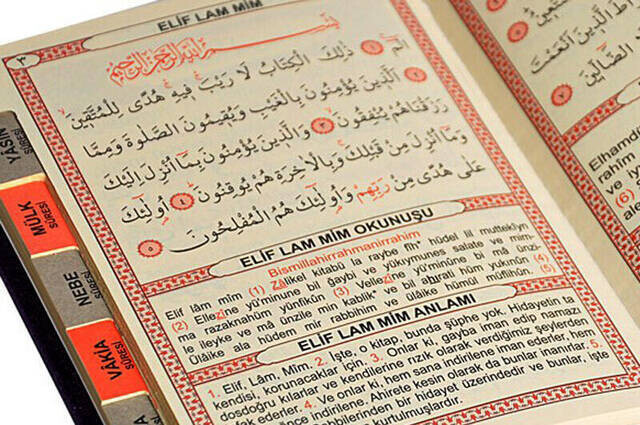 ELİF LAM MİM
٣
بسم الله الرحمن الرحيم
الٓمٓ ۚ ١ ذٰلِكَ الْكِتَابُ لَا رَيْبَ فِيهِ هُدًى لِلْمُتَّقِينَ
٢ اَلَّذِينَ يُؤْمِنُونَ بِالْغَيْبِ وَيُقِيمُونَ الصَّلٰوةَ وَمِمَّا
رَزَقْنَاهُمْ يُنْفِقُونَ ٣ وَالَّذِينَ يُؤْمِنُونَ بِمَٓا اُنْزِلَ اِلَيْكَ
وَمَٓا اُنْزِلَ مِنْ قَبْلِكَ وَبِالْاٰخِرَةِ هُمْ يُوقِنُونَ ٤ اُو۬لٰٓئِكَ
عَلٰى هُدًى مِنْ رَبِّهِمْ وَاُو۬لٰٓئِكَ هُمُ الْمُفْلِحُونَ ٥
ELİF LAM MİM OKUNUŞU
Bismillahirrahmanirrahim
Elif lâm mîm (1) Zâlikel kitâbü la raybe fîh* hüdel lil muttekîyn
(2) Ellezîne yü'minune bil ğaybi ve yükıymunes salate ve mim-
ma razaknahüm yünfikûn (3) Vellezîne yü'minûne bi mâ ünzi-
le ileyke ve mâ ünzile min kablik* ve bil ahırati hüm yukınûn (4)
Ülâike ala hüdem mir rabbihim ve ülâike hümül müflihûn. (5)
ELİF LAM MİM ANLAMI
1. Elif, Lâm, Mîm. 2. İşte, o kitap, bunda şüphe yok. Hidayetin ta
kendisi, korunacaklar için. 3. Onlar ki, gayba iman edip namazı
dosdoğru kılarlar ve kendilerine rızık olarak verdiğimiz şeylerden
ederler. 4. Ve onlar ki, hem sana indirilene iman ederler, hem
önce indirilene. Ahirete kesin olarak da bunlar inanırlar. 5.
Rabbilerinden bir hidayet üzerindedir ve bunlar, işte
kurtulmuşlardır.
YASİN
SÛRESİ
MÜLK
SÛRESİ
NEBE
SÛRESİ
VAKIA
SÛRESİ
الَّذِينَ اَنْعَمْتَ
الضَّالِّينَ
Elhamd
rahîm
(6)